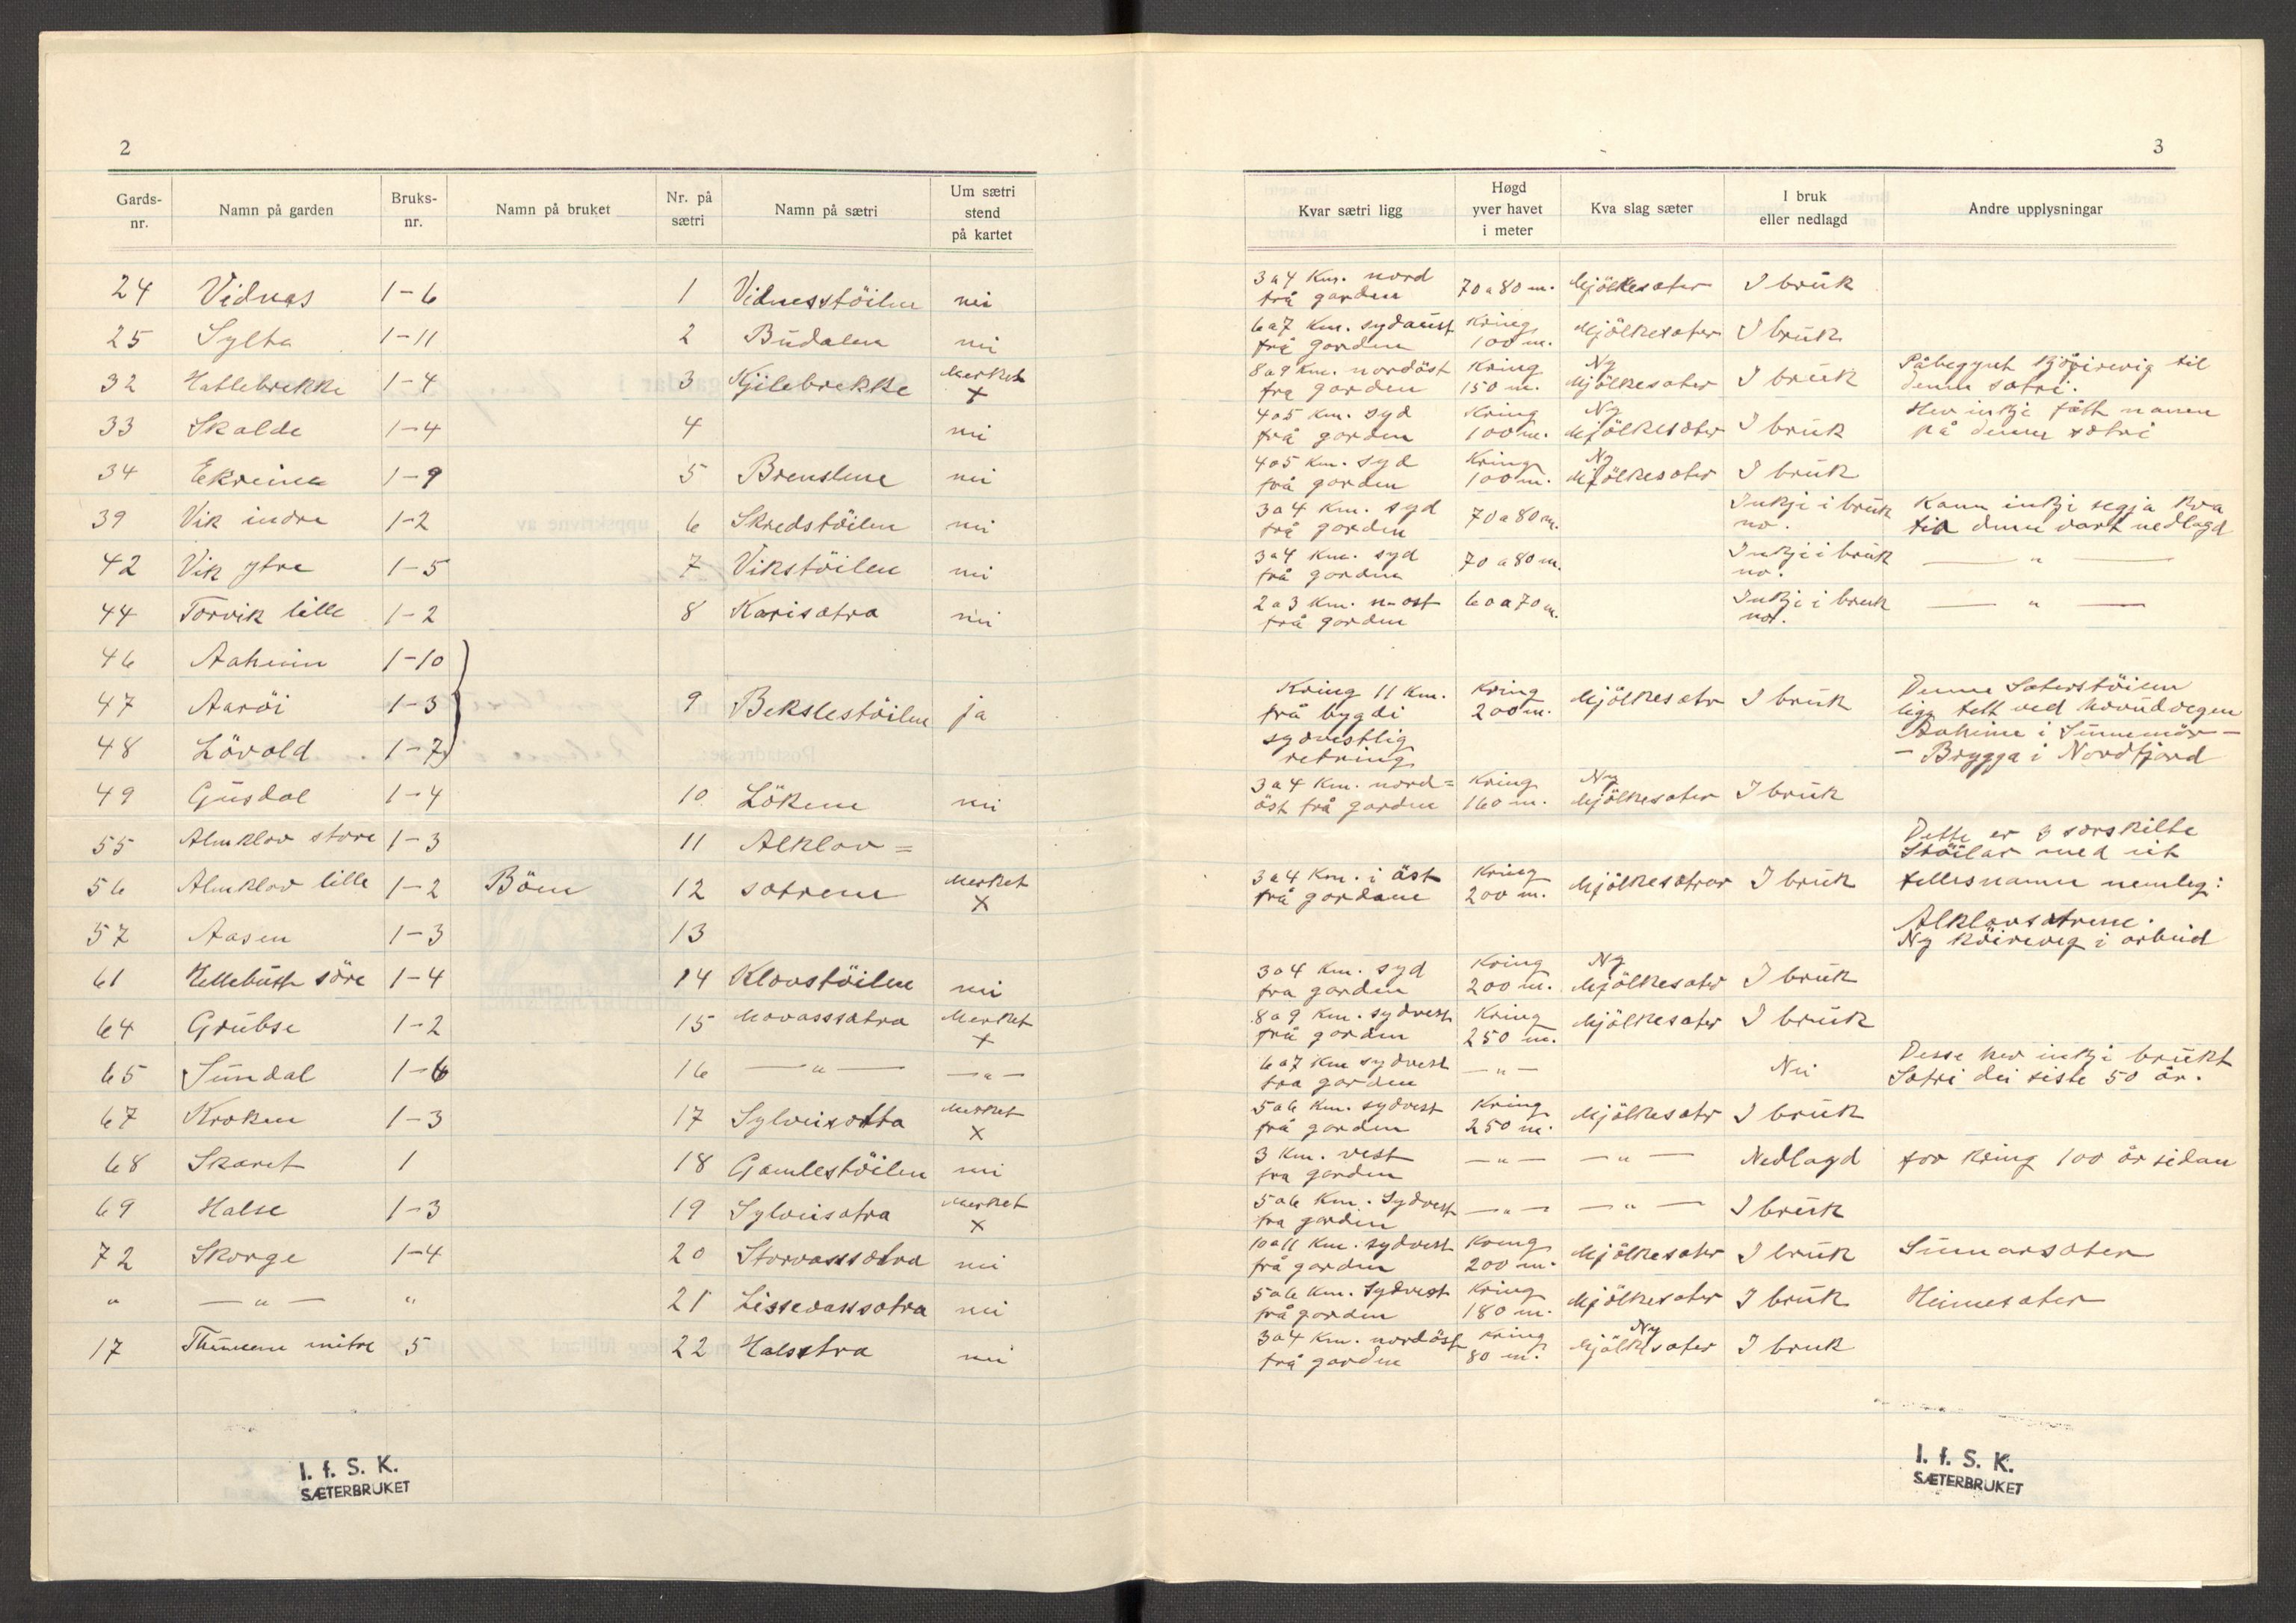 2
Gards-nr. Namn på garden Bruks-nr. Namn på bruket Nr. på sætri Namn på sætri Um sætri stend på kartet
24 Vidnas 1-6 1 Vidnesstöilen nei
25 Sylta 1-11 2 Budalen nei
32 Hatlebrekke 1-4 3 Kjilebrekke Merket +
33 Skalde 1-4 4 nei
34 Ekreine 1-9 5 Brenslene nei
39 Vik indre 1-2 6 Skredstöilen nei
42 Vik ytre 1-5 7 Vikstöilen nei
44 Torvik lille 1-2 8 Karisatra nei
46 Aaheim 1-10
47 Aaröi 1-3 } 9 Bekslestöilen ja
48 Lövold 1-7
49 Gusdal 1-4 10 Lökene nei
55 Almklov store 1-3 11 Alklov=
56 Almklov lille 1-2 Böen 12 satrene Merket X
57 Aasen 1-3 13
61 Hellebust söre 1-4 14 Klovstöilen nei
64 Grubse 1-2 15 Movasssatra Merket +
65 Sundal 1-6 16 — " — — " —
67 Kroken 1-3 17 Sylveisatra Merket X
68 Skaret 1 18 Gamlestöilen nei
69 Halse 1-3 19 Sylveisatra Merket X
72 Skorge 1-4 20 Storvasssatra nei
" — " — " 21 Lissevassatra nei
17 Thunem mitre 5 22 Halsetra nei
I. f. S. K.
SÆTERBRUKET
3
Kvar sætri ligg Høgd yver havet i meter Kva slag sæter I bruk eller nedlagd Andre upplysningar
3 a 4 Km. nord frå garden 70 a 80 m. Mjölkesater I bruk
6 a 7 Km. sydaust frå garden Kring 100 m. Mjölkesater I bruk
8 a 9 Km. nordöst fra garden Kring 150 m. Ny Mjölkesater I bruk Påbegynt kjöireveg til denne satri.
4 a 5 Km. syd frå garden Kring 100 m. Ny Mjölkesater I bruk Hev inkje fått namn på denne satri
4 a 5 Km. syd frå garden Kring 100 m. Ny Mjölkesater I bruk
3 a 4 Km. syd frå garden 70 a 80 m. Inkje i bruk no. Kann inkje segja kva tid denne vart nedlagd
3 a 4 Km. syd frå garden 70 a 80 m. Inkje i bruk no. — " —
2 a 3 Km. n-ost frå garden 60 a 70 m. Inkje i bruk no. — " —
Kring 11 Km. frå bygdi sydvestlig retning Kring 200 m. Mjölkesatr I bruk Denne Saterstöilen ligg tett ved hovudvegen Aaheim i Sunnmör — Brygga i Nordfjord
3 a 4 Km. nord= öst frå garden Kring 160 m. Ny Mjölkesater I bruk
3 a 4 Km. i öst frå gardane Kring 200 m. Mjölkesatrar I bruk Dette er 3 sorskilte Stöilar med eit fellesnamn nemleg: Alklovsatrene. Ny köireveg i arbeid
3 a 4 Km. syd fra garden Kring 200 m. Ny Mjölkesater I bruk
8 a 9 Km. sydvest frå garden Kring 250 m. Mjölkesater I bruk
6 a 7 Km sydvest fra garden — " — Nei Desse hev inkje brukt Satri dei siste 50 år.
5 a 6 Km. sydvest frå garden Kring 250 m. Mjölkesatr I bruk
3 Km. vest fra garden — " — — " — Nedlagd for kring 100 år sidan
5 a 6 Km. Sydvest fra garden — " — — " — I bruk
10 a 11 Km. sydvest frå garden Kring 200 m. Mjölkesater I bruk Sumarsater
5 a 6 Km. Sydvest frå garden Kring 180 m. Mjölkesater I bruk Heimesater
3 a 4 Km. nordöst frå garden Kring 80 m. Ny Mjölkesater I bruk
I. f. S. K.
SÆTERBRUKET